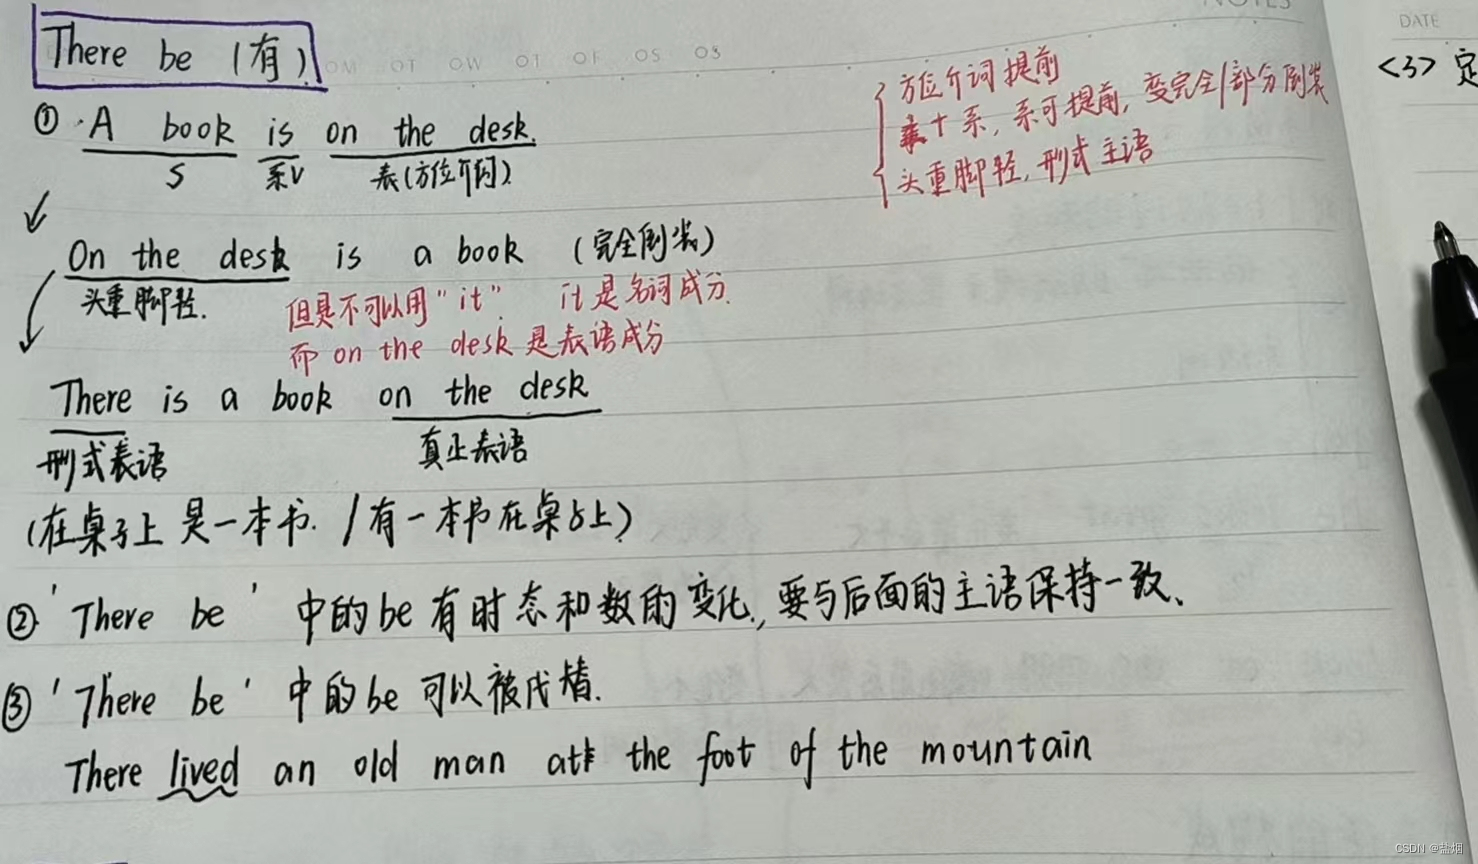 NOTES
There be (有)
OM OT OW OT OF OS OS
DATE
<3> 定
① A book is on the desk.
S 系V 表(方位介词)
方位介词提前
表+系,系可提前,变完全/部分倒装
头重脚轻,形式主语
On the desk is a book (完全倒装)
头重脚轻.
但是不可以用"it" it是名词成分.
而 on the desk 是表语成分
There is a book on the desk
形式表语 真正表语
(在桌子上是一本书. / 有一本书在桌子上)
② 'There be' 中的be有时态和数的变化,要与后面的主语保持一致、
③ 'There be' 中的be可以被代替.
There lived an old man at the foot of the mountain
CSDN @盐烟